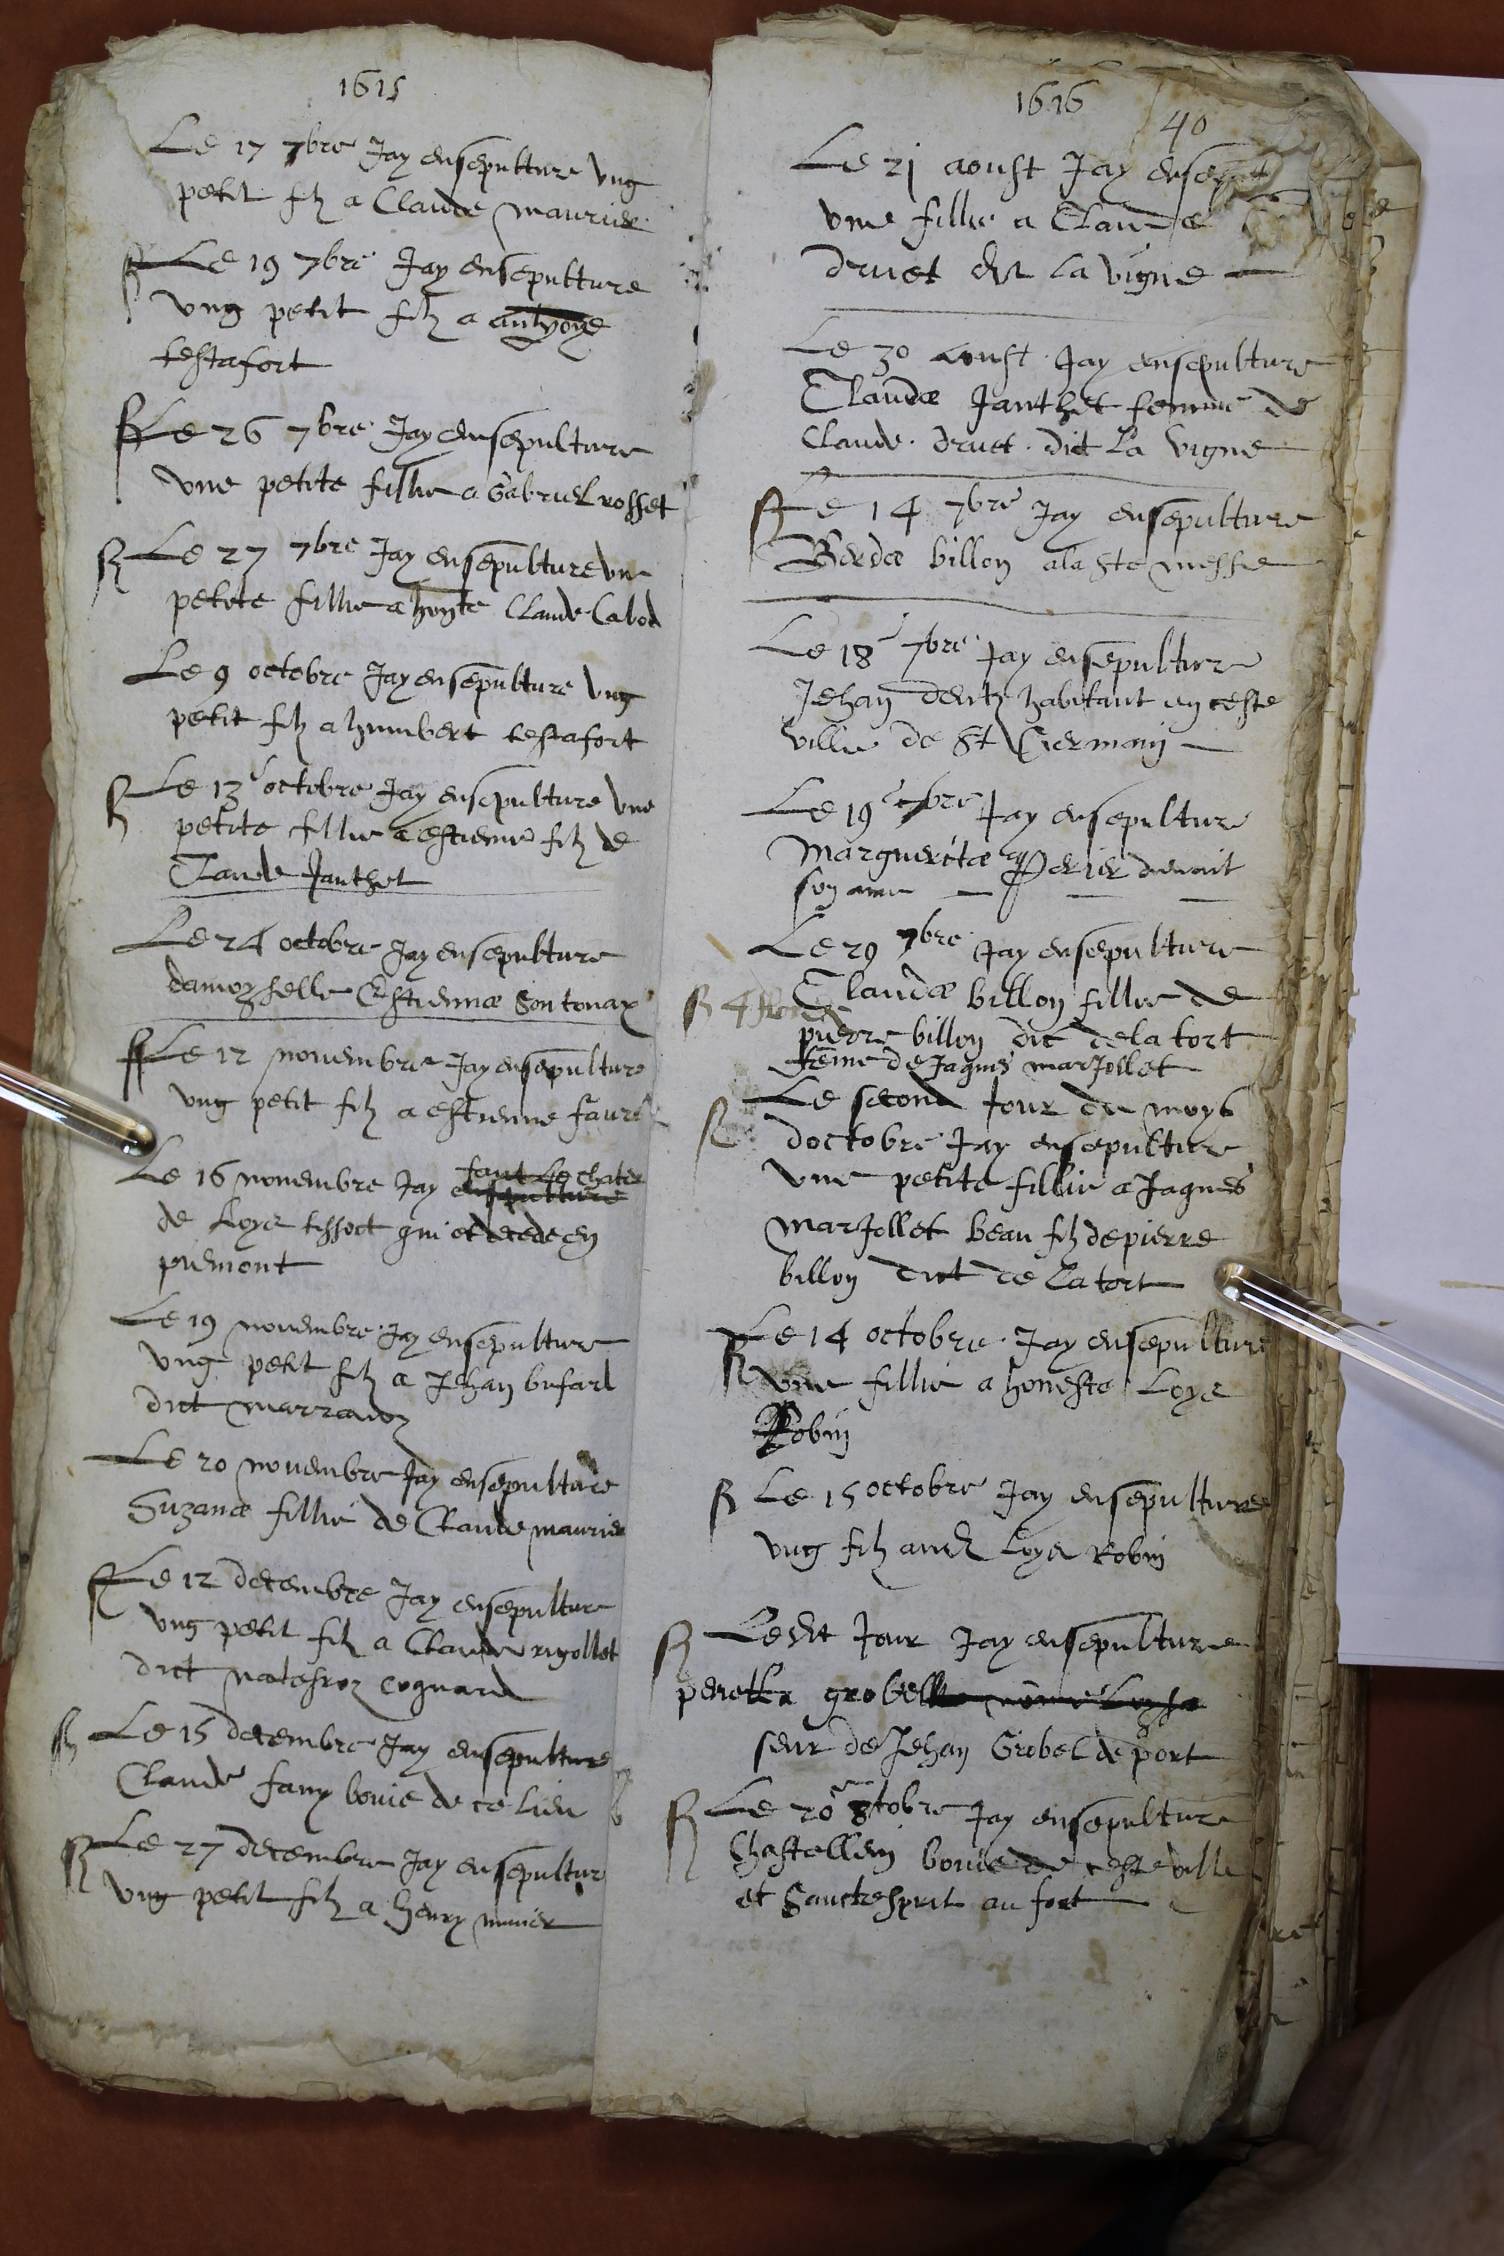 1615
Le 17 7bre Jay ensepulture ung
petit filz a Claude maurier
Le 19 7bre Jay ensepulture
ung petit filz a antoyne
testafort
Le 26 7bre Jay ensepulture
une petite fillie a Gabriel rosset
Le 27 7bre Jay ensepulture une
petite fillie a honte Claude Cabod
Le 9 octobre Jay ensepulture ung
petit filz a humbert testafort
Le 13 octobre Jay ensepulture une
petite fillie a estienne filz de
Claude Janthet
Le 24 octobre Jay ensepulture
damoyselle Estiennae
Le 12 novembre Jay ensepulture
ung petit filz a estienne faure
Le 16 novembre Jay faict le
de Loys tissot qui et decede en
piemont
Le 19 novembre Jay ensepulture
ung petit filz a Jehan bufard
dict
Le 20 novembre Jay ensepulture
Suzanae fillie de Claude maurier
Le 12 decembre Jay ensepulture
ung petit filz a Claude rigollet
dict cognard
Le 15 decembre Jay ensepulture
Claude fany de ce lieu
Le 27 decembre Jay ensepultur
ung petit filz a henry
1616
40
Le 21 aoust Jay
une fillie a Claude
druet dit la vigne
Le 30 aoust Jay ensepulture
Claudae Janthet femme de
Claude druet dict la vigne
Le 14 7bre Jay ensepulture
billon a la Ste messe
Le 18 7bre Jay ensepulture
Jehan habitant en ceste
ville de St Germain
Le 19 7bre Jay ensepulture
Margueritae Perier
son
Le 29 7bre Jay ensepulture
Claudae billon fillie de
pierre billon dit de la tort
feme de Jaques marJollet
Le second Jour du moys
doctobre Jay ensepulture
une petite fillie a Jaques
marJollet beau filz de pierre
billon dict de la tort
Le 14 octobre Jay ensepulture
une fillie a honeste Loys
Robin
Le 15 octobre Jay ensepulture
ung filz Loys Robin
Ledit Jour Jay ensepulture
peretta grobel
seur de Jehan Grobel de port
Le 20 8tobre Jay ensepulture
Chastellein de ceste ville
et Sanct esprit au fort